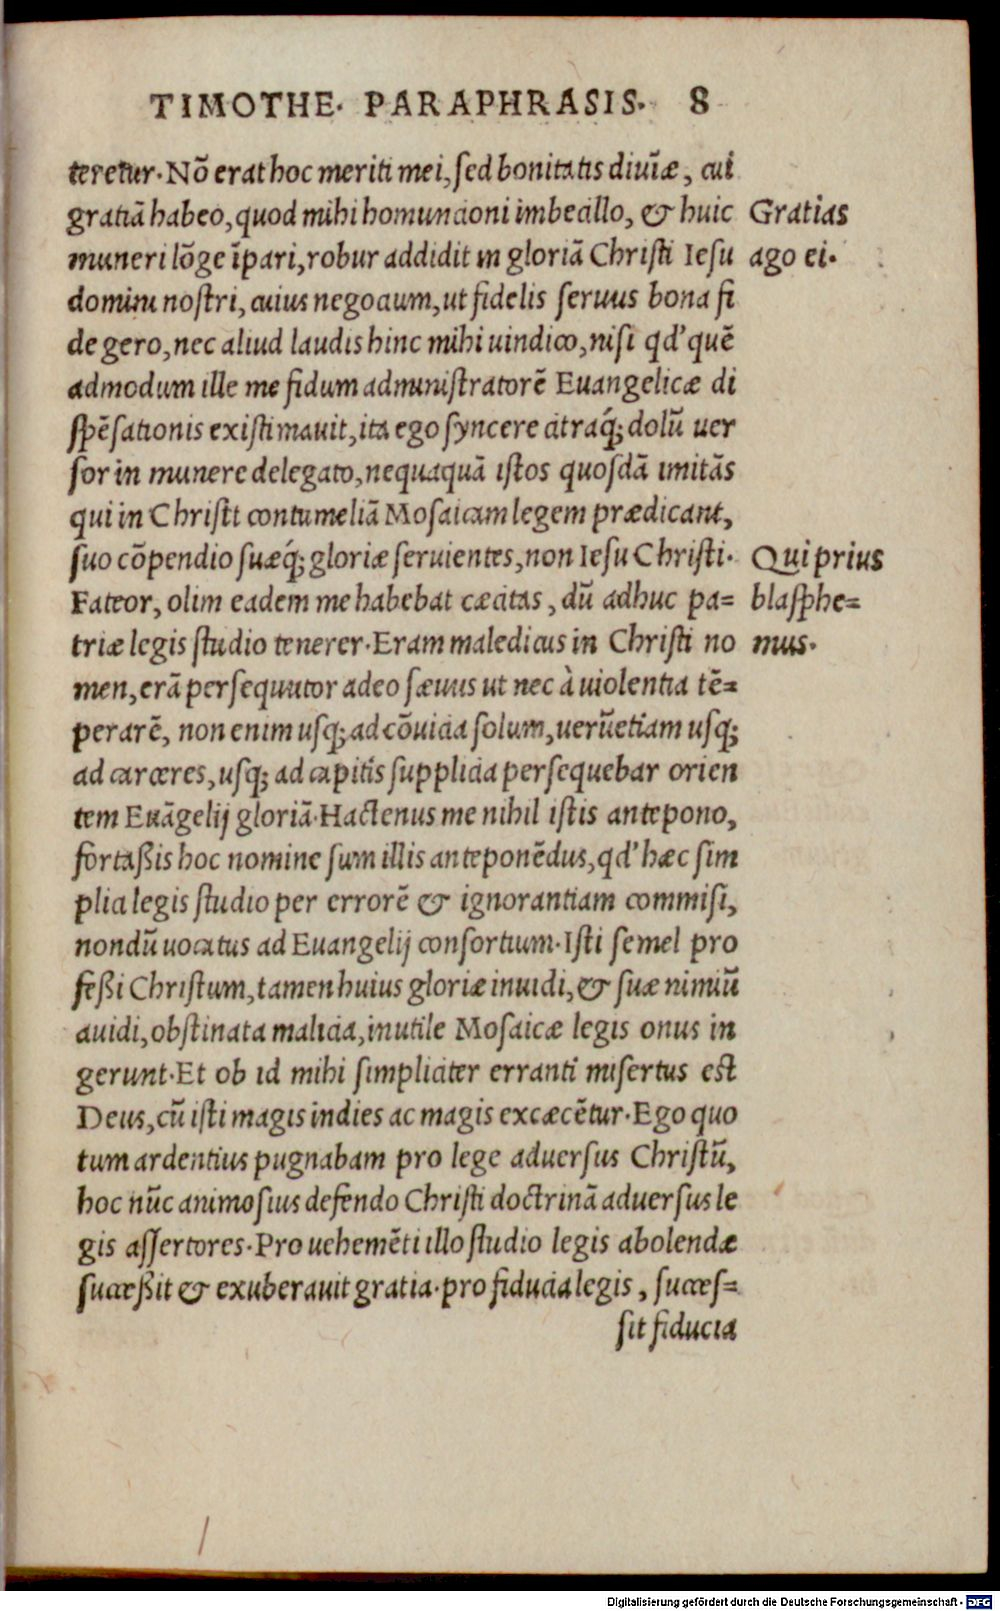 TIMOTHE. PARAPHRASIS. 8
teretur. Nō erat hoc meriti mei, sed bonitatis diuīæ, cui
gratiā habeo, quod mihi homuncioni imbecillo, & huic
muneri lōge īpari, robur addidit in gloriā Christi Iesu
domini nostri, cuius negocium, ut fidelis seruus bona fi
de gero, nec aliud laudis hinc mihi uindico, nisi qd' quē
admodum ille me fidum administratorē Euangelicæ di
spēsationis existimauit, ita ego syncere citraq́; dolū uer
sor in munere delegato, nequaquā istos quosdā imitās
qui in Christi contumeliā Mosaicam legem prædicant,
suo cōpendio suæq́; gloriæ seruientes, non Iesu Christi.
Fateor, olim eadem me habebat cæcitas, dū adhuc pa=
triæ legis studio tenerer. Eram maledicus in Christi no
men, erā persequutor adeo sæuus ut nec à uiolentia tē=
perarē, non enim usq; ad cōuicia solum, uerūetiam usq;
ad carceres, usq; ad capitis supplicia persequebar orien
tem Euāgelij gloriā. Hactenus me nihil istis antepono,
fortaßis hoc nomine sum illis anteponēdus, qd' hæc sim
plia legis studio per errorē & ignorantiam commisi,
nondū uocatus ad Euangelij consortium. Isti semel pro
feßi Christum, tamen huius gloriæ inuidi, & suæ nimiū
auidi, obstinata malicia, inutile Mosaicæ legis onus in
gerunt. Et ob id mihi simpliciter erranti misertus est
Deus, cū isti magis indies ac magis excæcētur. Ego quo
tum ardentius pugnabam pro lege aduersus Christū,
hoc nūc animosius defendo Christi doctrinā aduersus le
gis assertores. Pro uehemēti illo studio legis abolendæ
succeßit & exuberauit gratia. pro fiducia legis, succes=
sit fiducia
Gratias
ago ei.
Qui prius
blasphe=
mus.
Digitalisierung gefördert durch die Deutsche Forschungsgemeinschaft - DFG